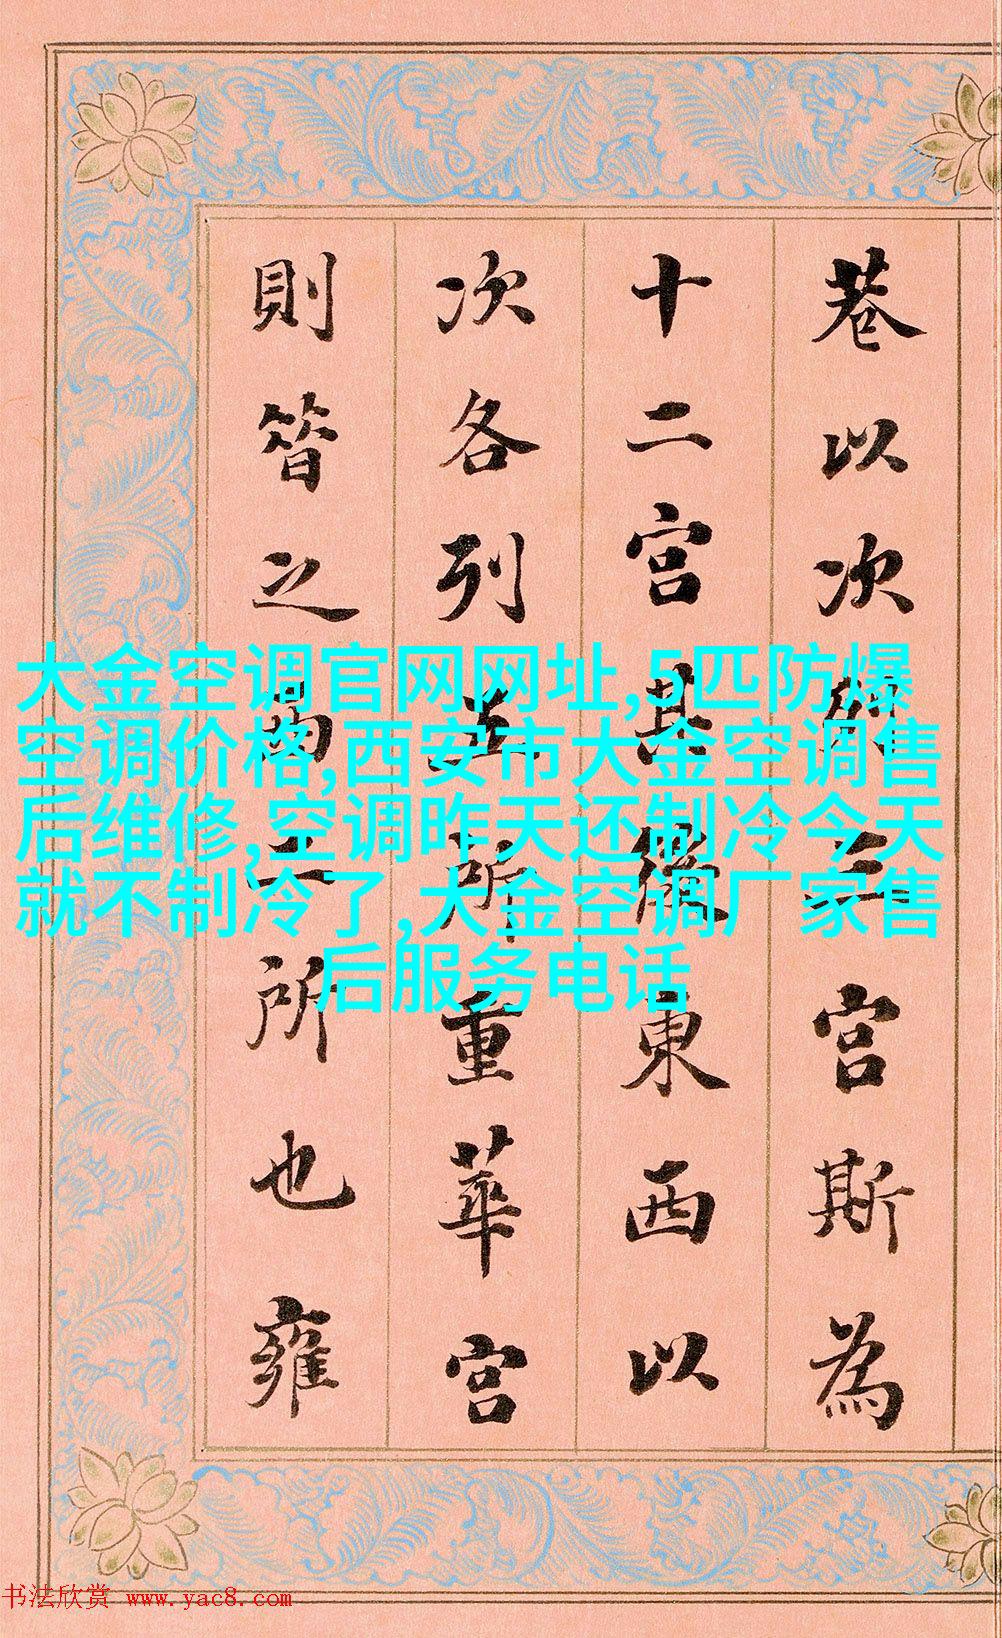 巷以次三宮斯為
十二宮其東西以
次各列五所重華宮
則昔之二所也雍
大金空调官网网址,5匹防爆
空调价格,西安市大金空调售
后维修,空调昨天还制冷今天
就不制冷了,大金空调厂家售
后服务电话
书法欣赏 www.yac8.com